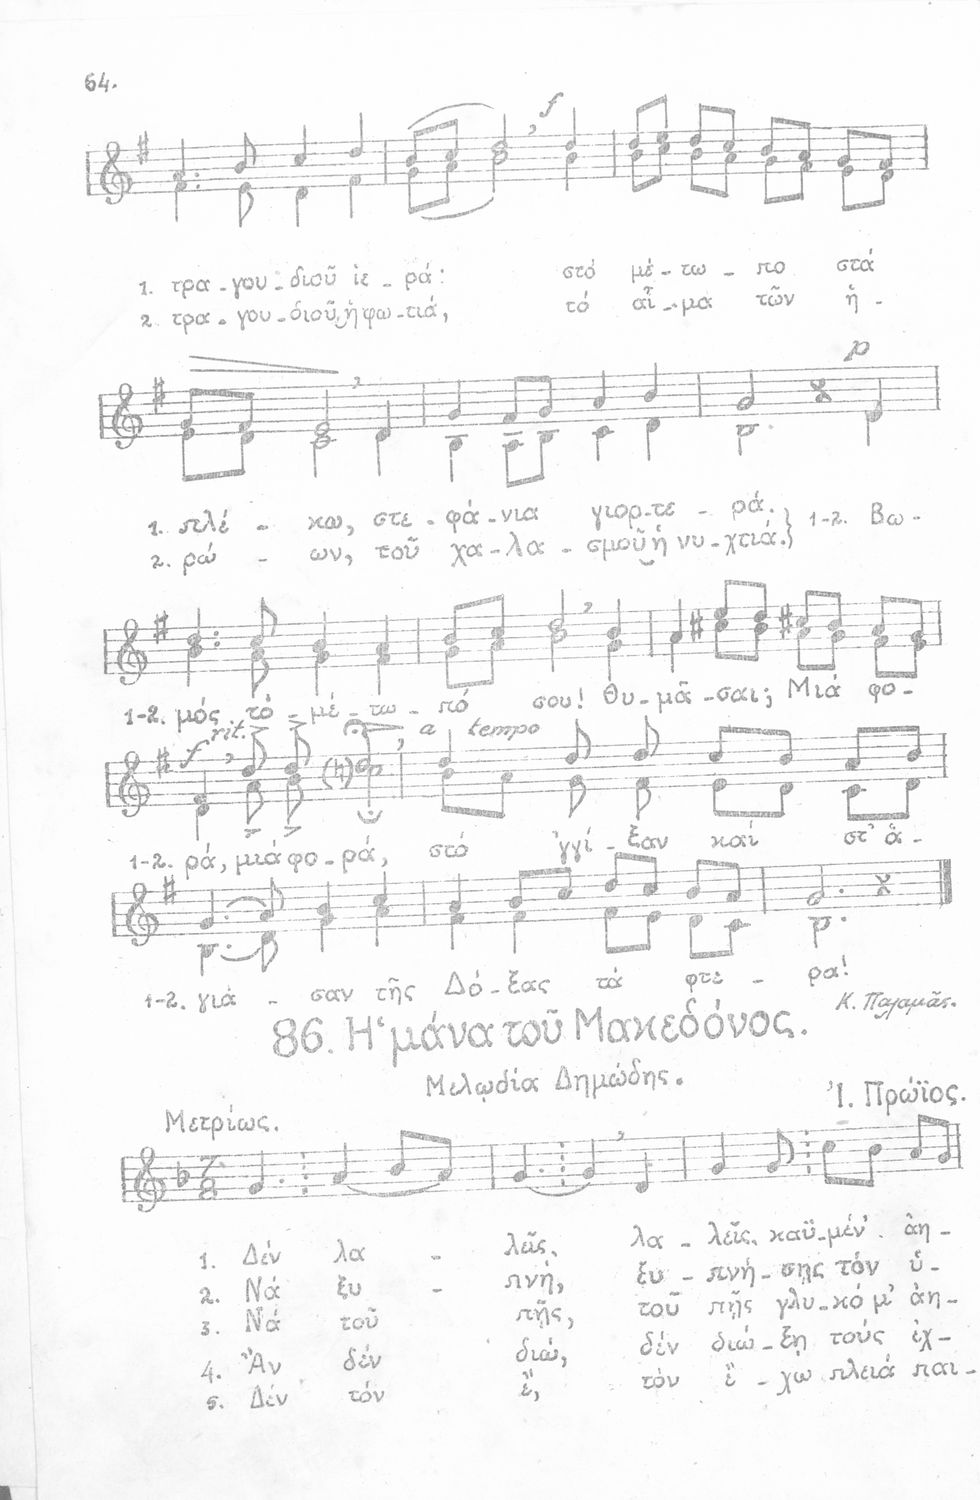 64.
f
1. τρα - γου - διοῦ ἱε - ρά: στό μέ - τω - πο στά
2. τρα - γου - διοῦ, ἡ φω - τιά, τό αἷ - μα τῶν ἡ -
p
1. πλέ - κω, στε - φά - νια γιορ - τε - ρά. } 1-2. Βω -
2. ρώ - ων, τοῦ χα - λα - σμοῦ ἡ νυ - χτιά. }
1-2. μός τό μέ - τω - πό σου! Θυ - μᾶ - σαι; Μιά φο -
f rit. a tempo
1-2. ρά, μιά φο - ρά, στό ἀγγί - ξαν καί στ' ἅ -
1-2. γιά - σαν τῆς Δό - ξας τά φτε - ρα!
Κ. Παλαμᾶς.
86. Η‘ μάνα τοῦ Μακεδόνος.
Μελῳδία Δημώδης.
Ἰ. Πρώϊος.
Μετρίως.
7 8
1. Δέν λα - λεῖς, λα - λεῖς, καϋ - μέν' ἀη -
2. Νά ξυ - πνή, ξυ - πνή - σῃς τόν ὑ -
3. Νά τοῦ πῇς, τοῦ πῇς γλυ - κό μ' ἀη -
4. Ἄν δέν διώ, δέν διώ - ξῃ τούς ἐχ -
5. Δέν τόν ἔ, τόν ἔ - χω πλειά παι -